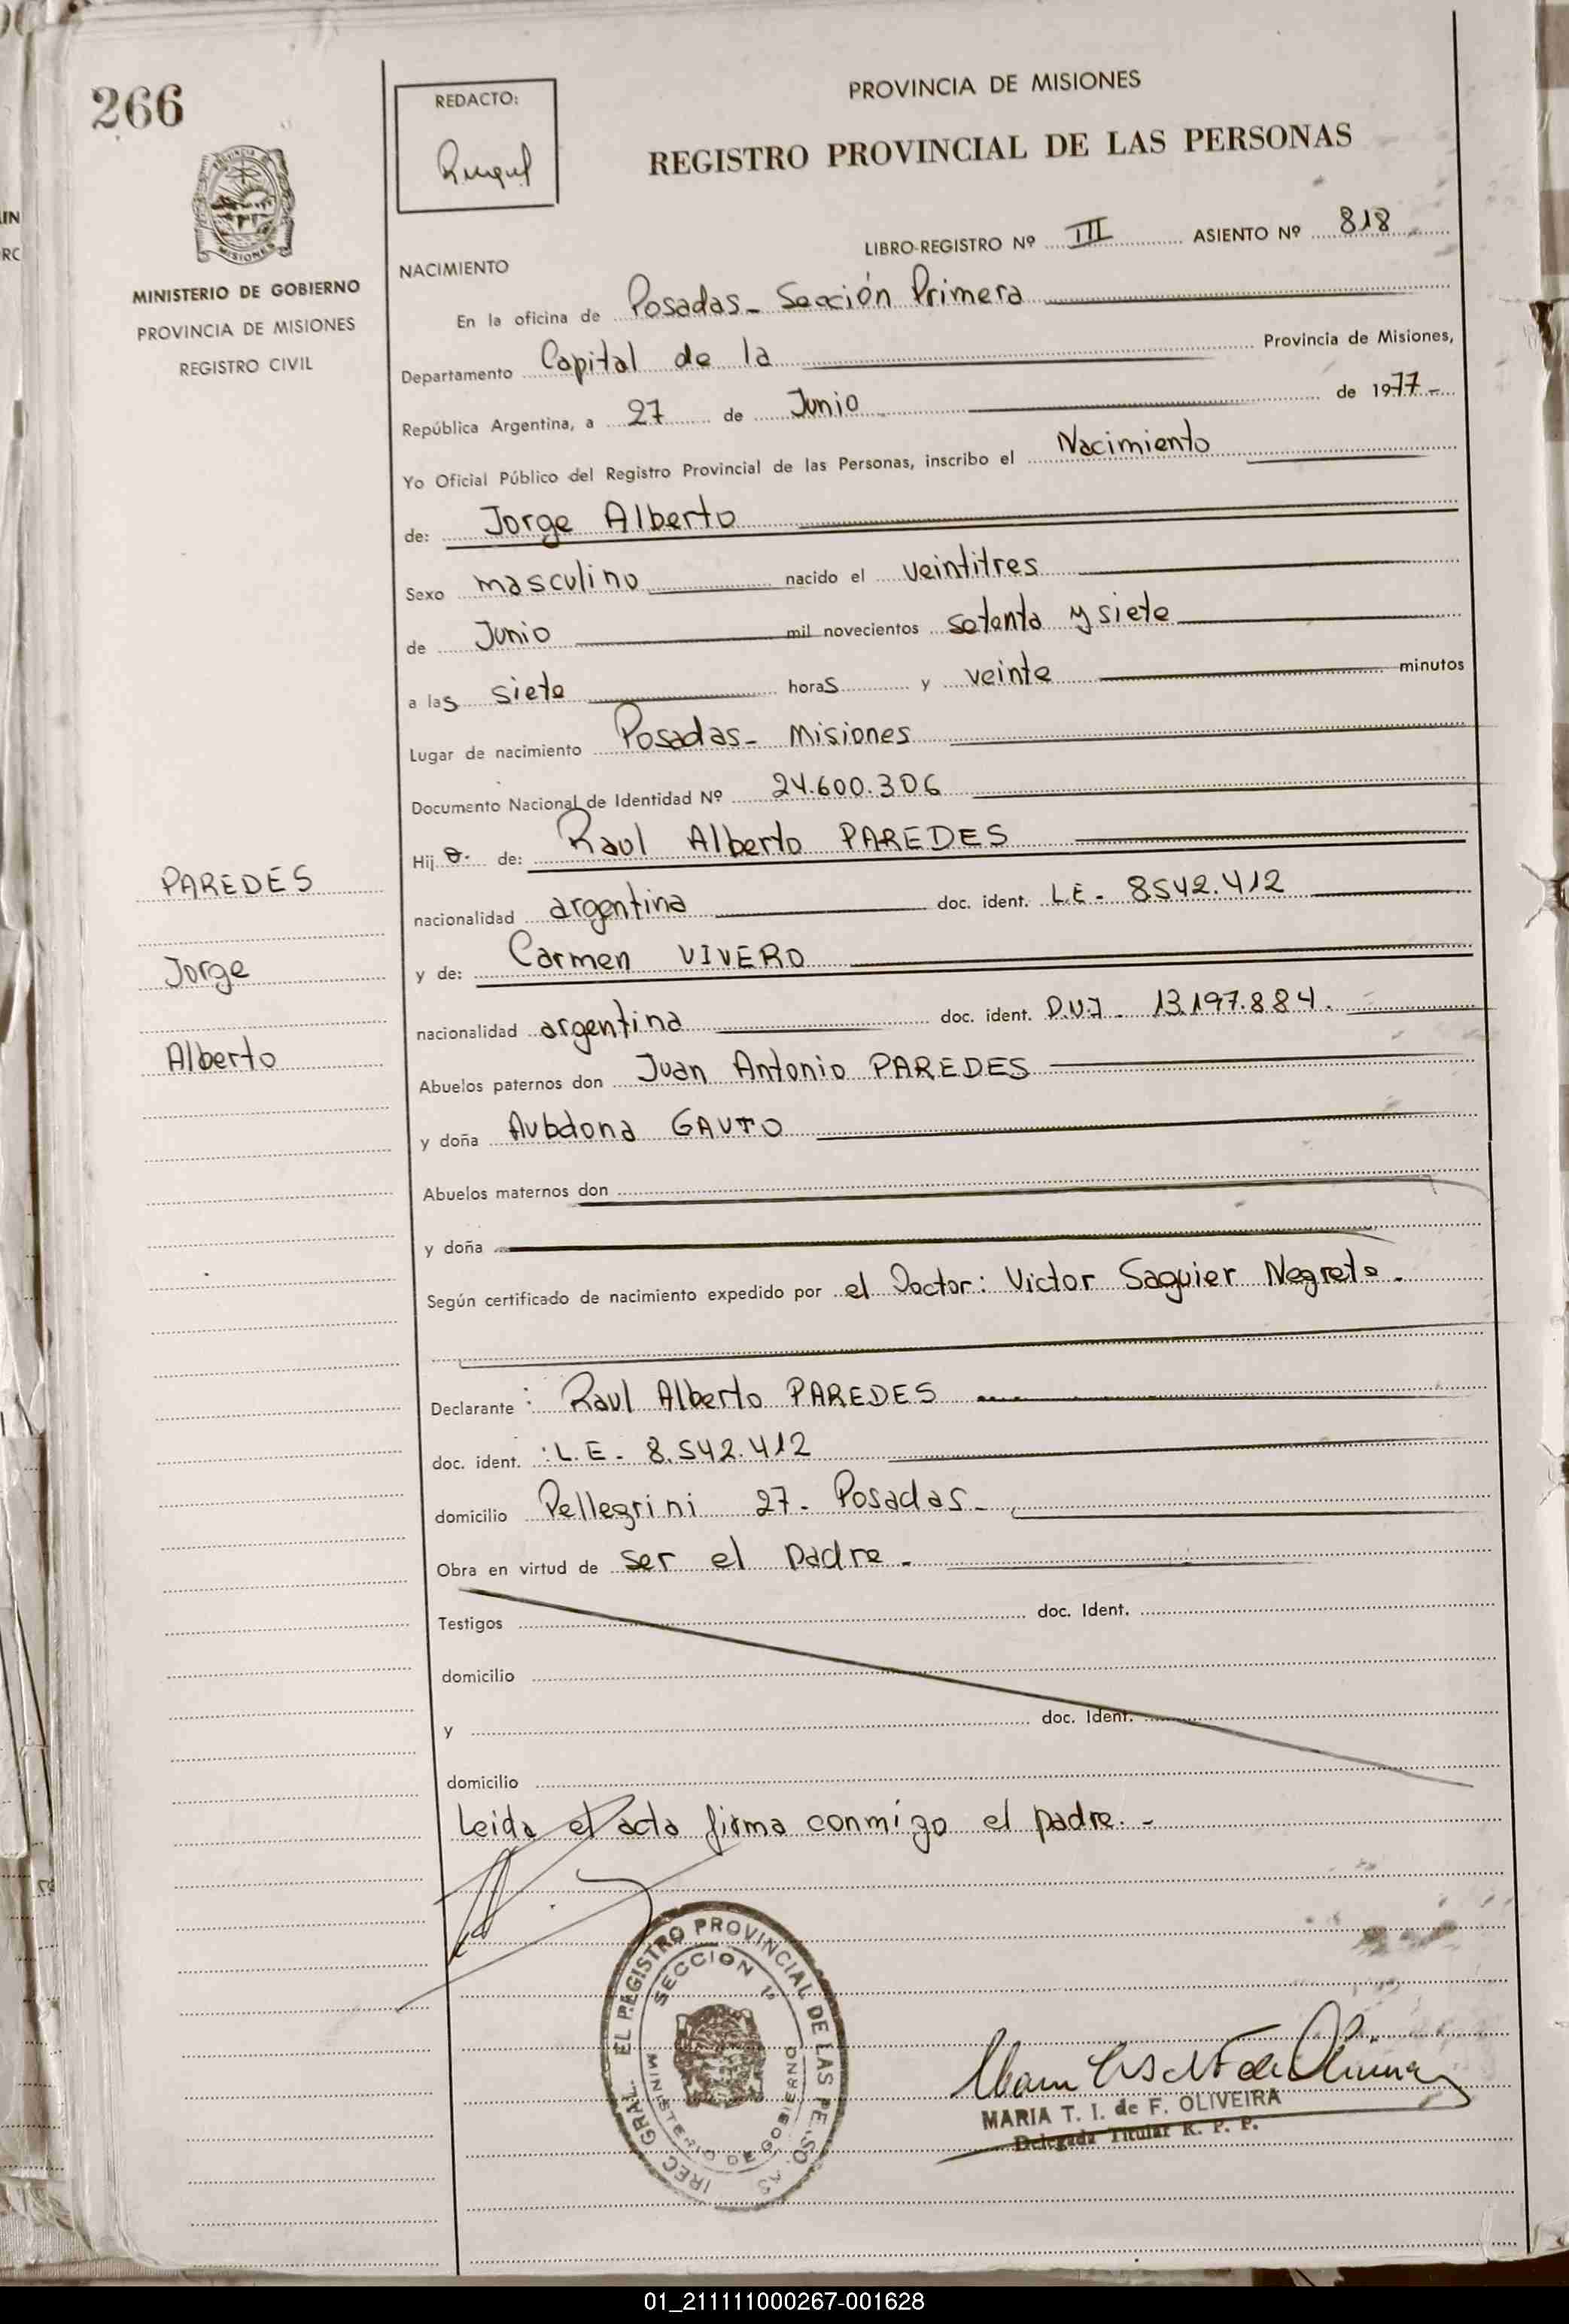 266
REDACTO:
PROVINCIA DE MISIONES
REGISTRO PROVINCIAL DE LAS PERSONAS
LIBRO-REGISTRO Nº III ASIENTO Nº 818
MINISTERIO DE GOBIERNO
PROVINCIA DE MISIONES
REGISTRO CIVIL
NACIMIENTO
En la oficina de Posadas- Sección Primera
Departamento Capital de la Provincia de Misiones,
República Argentina, a 27 de Junio de 1977-
Yo Oficial Público del Registro Provincial de las Personas, inscribo el Nacimiento
de: Jorge Alberto
Sexo masculino nacido el veintitres
de Junio mil novecientos setenta y siete
a las siete horas y veinte minutos
Lugar de nacimiento Posadas- Misiones
Documento Nacional de Identidad Nº 24.600.306
Hijo de: Raul Alberto PAREDES
nacionalidad argentina doc. ident. L.E- 8.542.412
y de: Carmen VIVERO
nacionalidad argentina doc. ident. D.N.I- 13.197.884.
Abuelos paternos don Juan Antonio PAREDES
y doña Aubdona GAUTO
Abuelos maternos don
y doña
Según certificado de nacimiento expedido por el Doctor: Victor Saguier Negrete.
Declarante: Raul Alberto PAREDES
doc. ident. :L.E- 8.542.412
domicilio Pellegrini 27- Posadas-
Obra en virtud de ser el padre-
Testigos doc. Ident.
domicilio
y doc. Ident.
domicilio
Leida el acta firma conmigo el padre.-
PAREDES
Jorge
Alberto
EL REGISTRO PROVINCIAL DE LAS
SECCION 1ª
MINISTERIO DE GOBIERNO
MARIA T. I. de F. OLIVEIRA
Delegada Titular R. P. P.
01_211111000267-001628